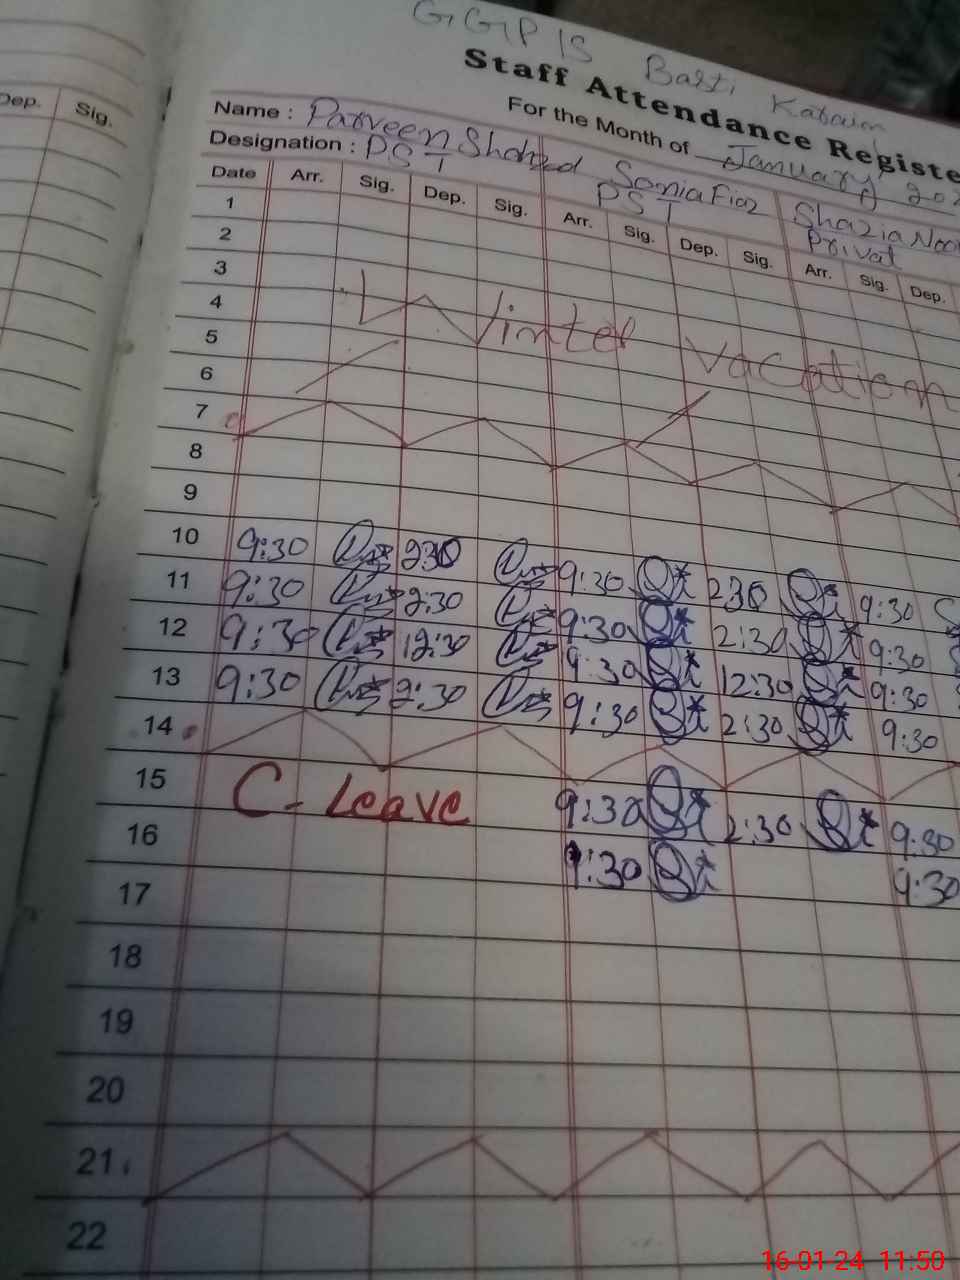 GGPIS Basti
Staff Attendance Registe
For the Month of January 202
Name : Parveen Shahzad Sonia Fiaz Shazia Noo
Designation : PST PST Privat
Dep. Sig.
Date Arr. Sig. Dep. Sig. Arr. Sig. Dep. Sig. Arr. Sig. Dep.
1
2
3
4 Winter Vacation
5
6
7
8
9
10 9:30 2:30 9:30 2:30 9:30
11 9:30 2:30 9:30 2:30 9:30
12 9:30 12:30 9:30 12:30 9:30
13 9:30 2:30 9:30 2:30 9:30
14
15 C- Leave 9:30 2:30 9:30
16 9:30 9:30
17
18
19
20
21
22
16-01-24 11:50